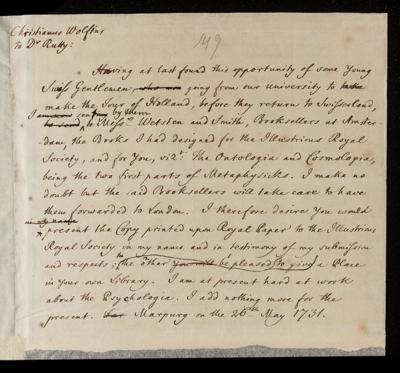 Christianus Wolfius
to Dr Rutty:
149
Having at last found this opportunity of some young
Swiss Gentlemen, who are going from our university to take
make the Tour of Holland, before they return to Swisserland,
I sent by them
to send to Messrs Wetsten and Smith, Booksellers at Amster-
dam, the Books I had designed for the Illustrious Royal
Society, and for You, vizt. The Ontologia and Cosmologia,
being the two first parts of Metaphysicks. I make no
doubt but the said Booksellers will take care to have
them forwarded to London. I therefore desire You would
in my name
present the Copy printed upon Royal Paper to the Illustrious
Royal Society in my name and in testimony of my submission
and respects; the other you will be pleased to give a Place
in your own Library. I am at present hard at work
about the Psychologia. I add nothing more for the
present. Marpurg on the 26th May 1731.